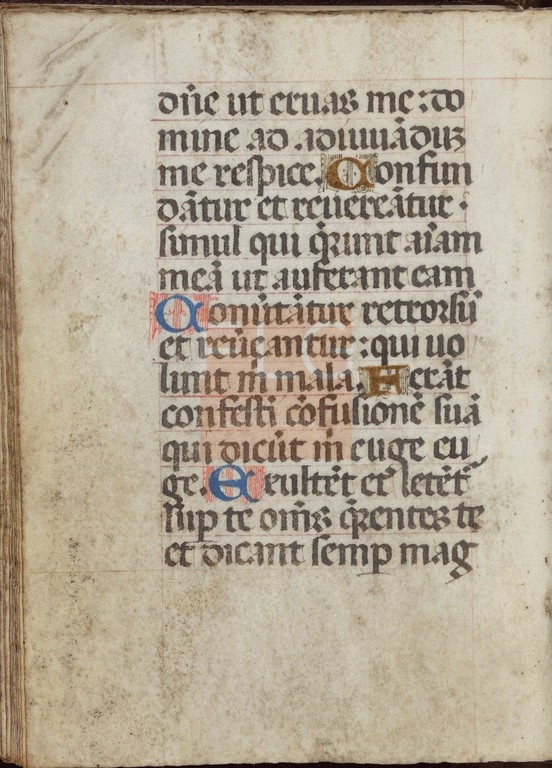 dñe ut eruas me: do
mine ad adiuuãduꝫ
me respice. Confun
dãtur et reuereãtur ·
simul qui q̃runt aĩam
meã ut auferant eam
Conũtãtur retrorsũ
et reũeantur: qui uo
lunt m̃ mala. Ferãt
confesti cõfusionẽ suã
qui dicũt m̃ euge eu
ge. Exultẽt et letẽt
sup te om̃s q̃rentes te
et dicant semp mag